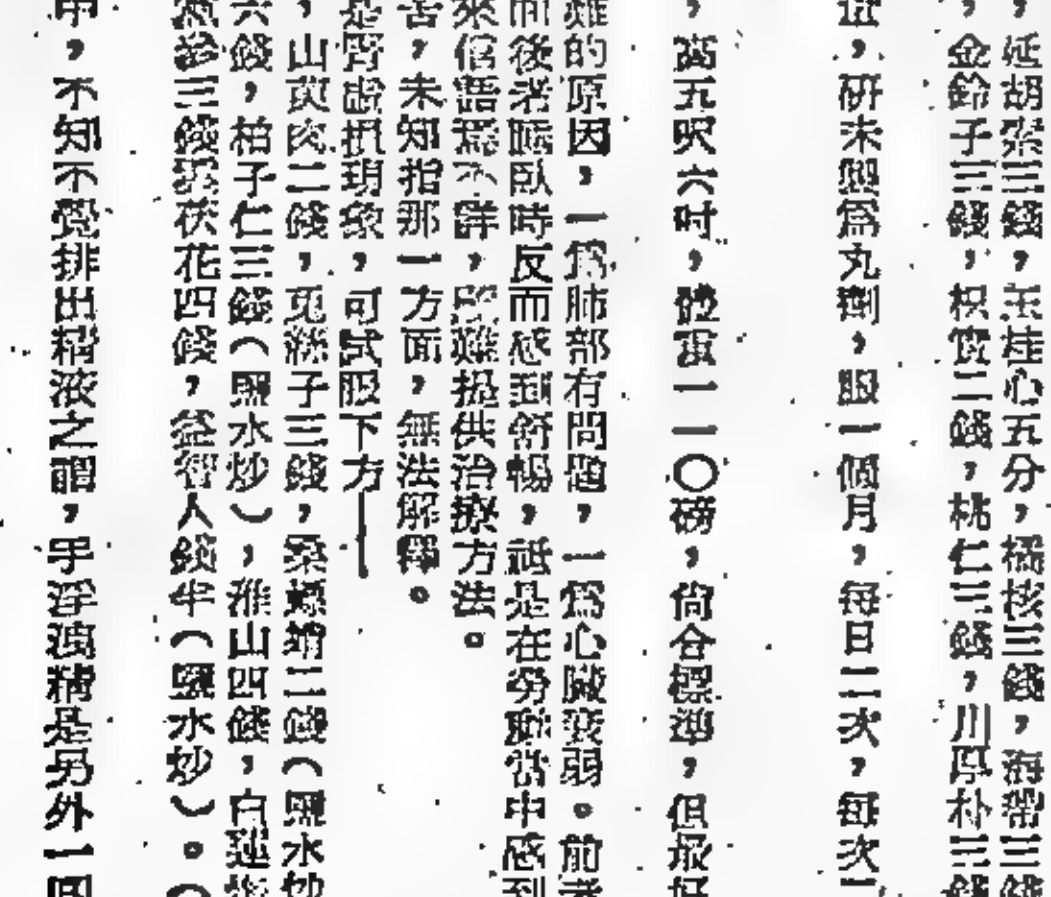 ，延胡索三錢，玉桂心五分，橘核三錢，海帶三錢
，金鈴子三錢，枳實二錢，桃仁三錢，川厚朴三錢
，研末煉為丸劑，服一個月，每日二次，每次
，高五呎六吋，體重一一〇磅，尚合標準，但最好
難的原因，一為肺部有問題，一為心臟衰弱。前者
而後者睡臥時反而感到舒暢，祇是在勞動當中感到
來信語焉不詳，所難提供治療方法。
苦，未知指那一方面，無法解釋。
是腎虛損現象，可試服下方——
，山萸肉二錢，菟絲子三錢，桑螵蛸二錢（鹽水炒
六錢，柏子仁三錢（鹽水炒），淮山四錢，白蓮
三錢茯花四錢，益智人錢半（鹽水炒）。（
中，不知不覺排出精液之謂，手淫洩精是另外一回